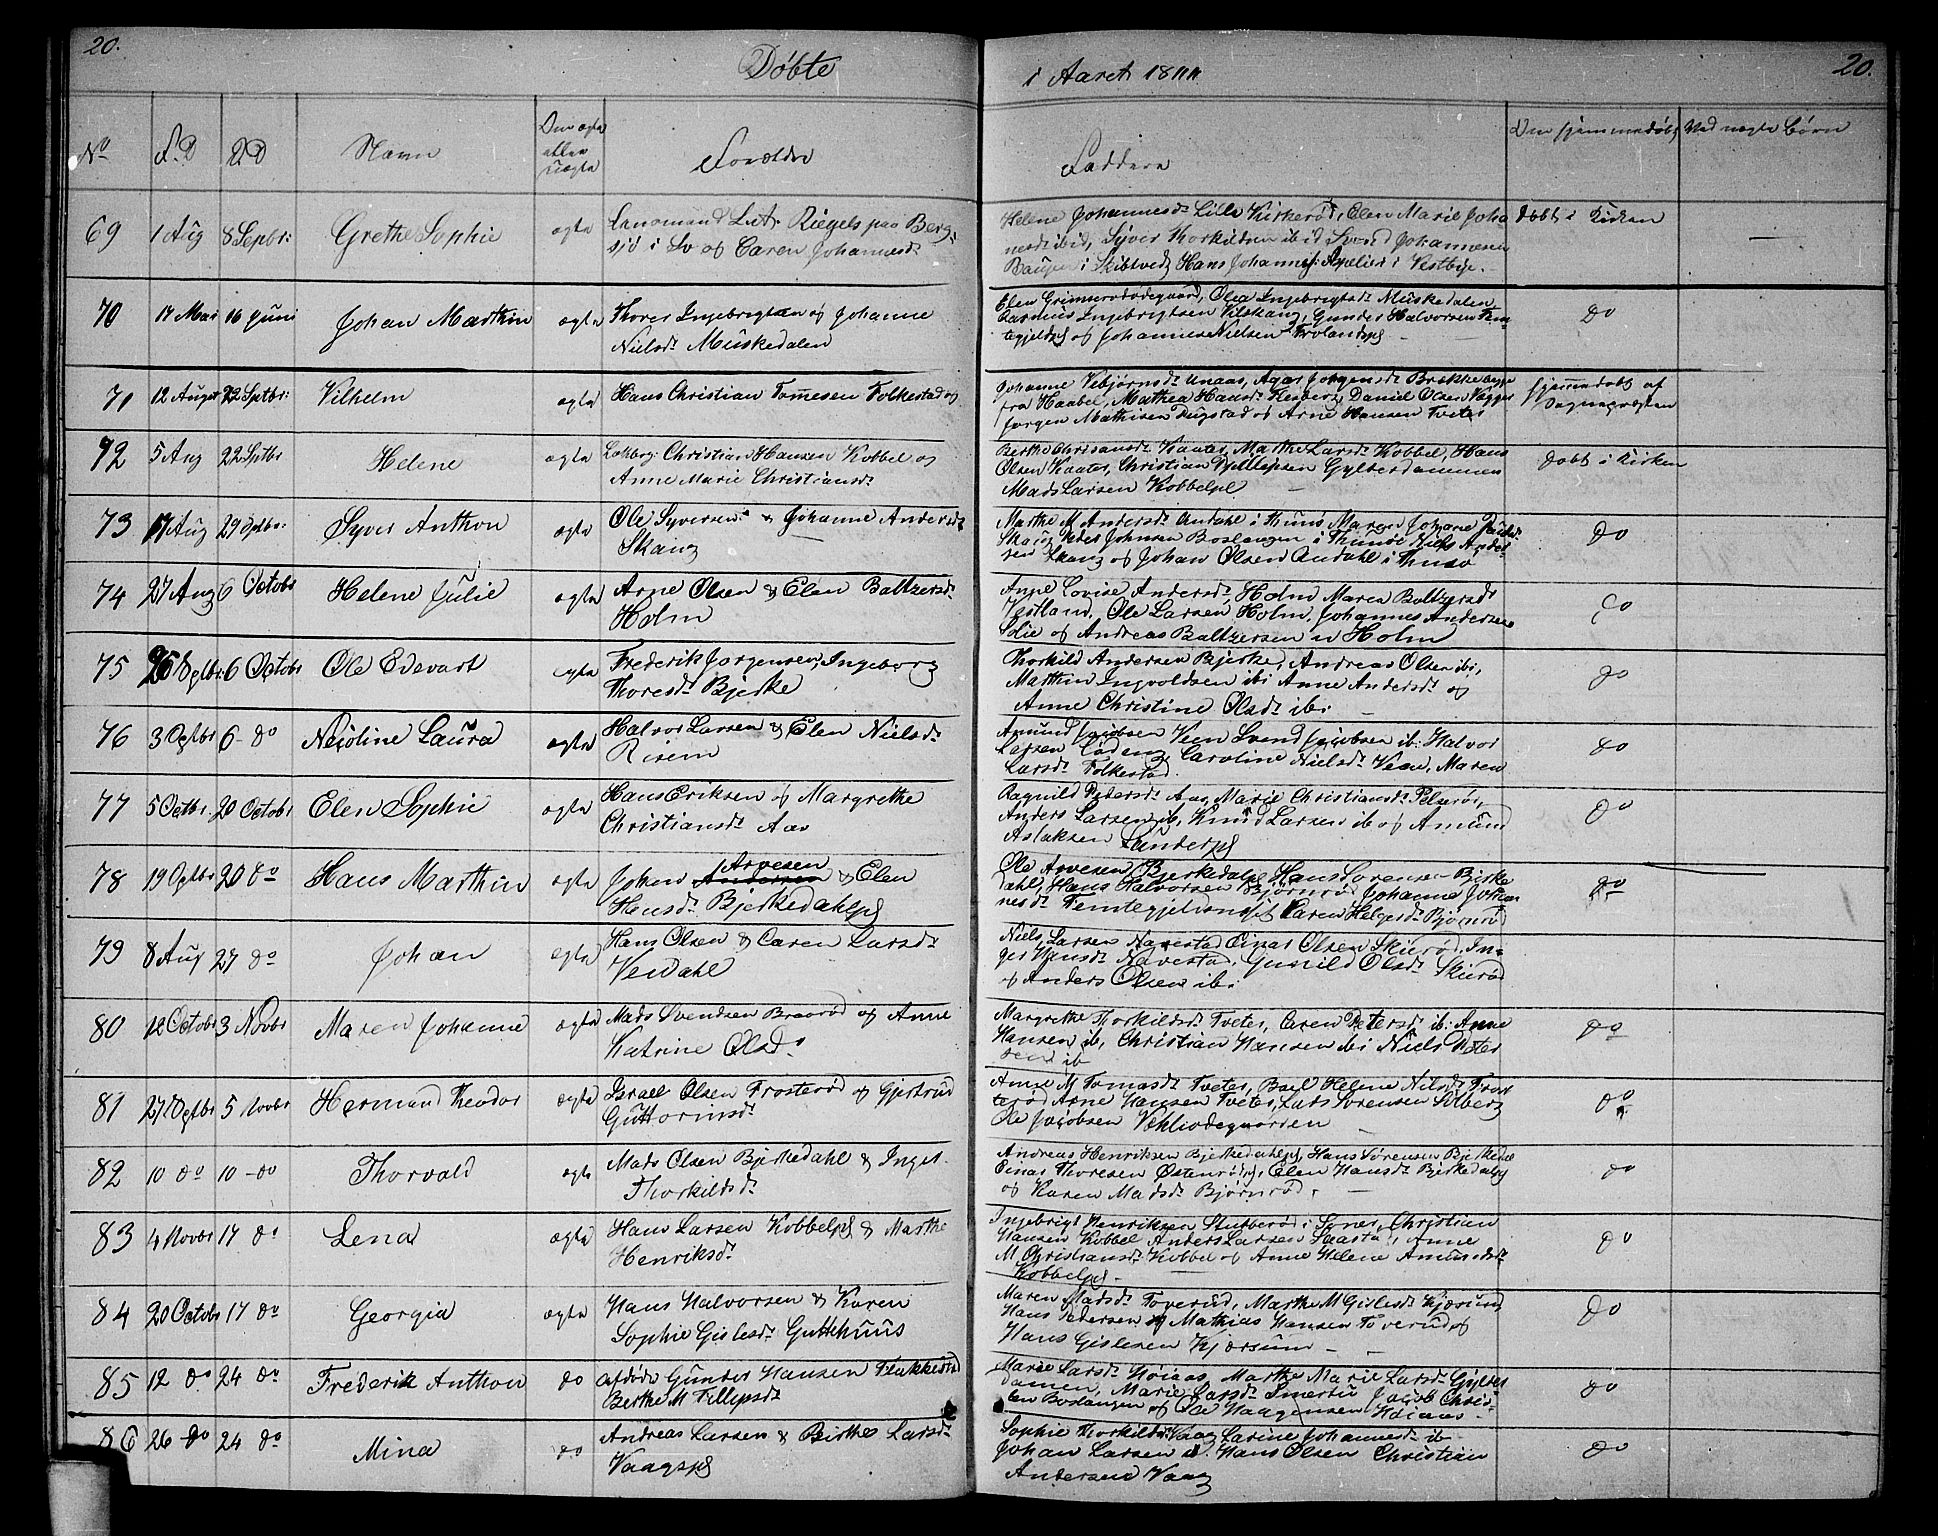 20.
Døbte
i Aaret 1844
20.
No
F.D
D.D
Navn
Om ægte
eller
uægte
Forældre
Faddere
Om hjemmedøbt
Ved uægte Børn
69 1 Aug 8 Sepbr: Grethe Sophie ægte
Lensmand Lut: Riegels paa Berg-
sjø i Sv og Caren Johannesd:
Helene Johannesd: Lille Kirkerød, Elen Marie Joha-
nesd: ibid, Syver Thorkildsen ibid Svend Johannesen
i Skibtvedt Hans Johannes: i Vestbye.
Døbt i Kirken
70 17 Mai 16 Juni Johan Marthin ægte
Thores Ingebrigtsen og Johanne
Nielsd: Muskedalen
Elen Grimsrødødegaard, Olea Ingebrigtsd: Muskedalen
Ingebrigtsen Vilskang, Gunder Halvorsen Fem-
tegjeldspl og Johannes Nielsen Frolandspl
Do
71 12 August 22 Sptbr: Vilhelm ægte
Hans Christian Tomesen Folkestad og
Johanne Vebjørnsd: Unaas, Agat Jørgensd: Brekke begge
fra Haabel, Mathea Hansd: Daniel Olsen
Jørgen Mathisen Rugstad og Arne Hansen Tveter
hjemmedøbt af
Sognepræsten
72 5 Aug 22 Sptbr Helene ægte
Christian Hansen Kobbel og
Anne Marie Christiansd:
Berthe Kaater, Marthe Larsd: Kobbel, Hans
Olsen Kaater, Christian Gylterdammen
Mads Larsen Kobbelpl
Døbt i Kirken
73 17 Aug 29 Sptbr: Syver Anthon ægte
Ole Syversen & Johanne Andersd:
Skaug
Marthe M Andersd: Andahl i Thunø, Maren Johanne
Skaug Peder Johnsen Boslangen i Thunø Niels Ander-
sen Skaug og Johan Olsen Andahl i Thunø
Do
74 27 Aug 6 Octobr Helene Julie ægte
Arne Olsen & Elen Baltzersd:
Holm
Anne Lovise Andersd: Holm Maren Baltzersd:
Vestland, Ole Larsen Holm, Johannes Andersen
Solie og Andreas Baltzersen Holm
Do
75 Sptbr 6 Octobr Ole Edevart ægte
Frederik Jørgensen, Ingeborg
Thoresd: Bjerke
Thorkild Andersen Bjerke, Andreas Olsen ib:,
Marthin Ingvoldsen ib: Anne Andersd: og
Anne Christine Olsd: ib:
Do
76 3 Sptbr 6 - do Nejoline Laura ægte
Halvor Larsen & Elen Nielsd:
Risem
Amund Jacobsen Veen Svend Jacobsen ib: Halvor
Larsen Caroline Nielsd: Veen, Maren
Larsd: Folkestad.
do
77 5 Octbr 20 Octobr Elen Sophie ægte
Hans Eriksen og Margrethe
Christiansd: Aas
Ragnild Pedersd: Aas, Marie Christiansd: Pelserøi,
Anders Larsen ib, Knud Larsen ib og Amund
Aslaksen Sunderpl
Do
78 19 Sptbr 20 do Hans Marthin ægte
Johan Arvesen & Elen
Hansd: Bjerkedahlpl
Ole Arvesen Bjerkedalpl Hans Sørensen Bjerke
dahl, Hans Halvorsen Bjørnrød Johanne Johan
nesd: Femtegjeld Caren Helgesd: Bjørnrød
Do
79 8 Aug 27 do Johan ægte
Hans Olsen & Caren Larsd:
Verdahl
Niels Larsen Navestad Einar Olsen Skierød, In-
ger Hansd: Navestad, Gunild Olsd: Skierød
og Anders Olsen ib:
80 12 Octobr 3 Novbr Maren Johanne ægte
Mads Svendsen Braarød og Anne
Katrine Olsd:
Margrethe Thorkildsd: Tveter, Caren Petersd: ib: Anne
Hansen ib, Christian Hansen ib: Niels Peter
sen ib
Do
81 27 Sptbr 5 Novbr Herman Theodor ægte
Israel Olsen Frosterød og Gjertrud
Guttormsd:
Anne M Tomasd: Tveter, Boel Helene Nilsd: Fros
terød Arne Hansen Tveter, Lars Sørensen Solberg
Ole Jacobsen Vekliødegaarden
Do
82 10 do 10 - do Thorvald ægte
Mads Olsen Bjerkedahl & Inger
Thorkildsd:
Andreas Henriksen Bjerkedahlpl, Hans Sørensen Bjerkeda
Einar Thoresen Østenrødpl, Elen Hansd: Bjerkedalpl
og Karen Madsd: Bjørnrød
do
83 4 Novbr 17 do Lena ægte
Hans Larsen Kobbelpl & Marthe
Henriksd:
Ingebrigt Henriksen Stubberød i Soner, Christian
Hansen Kobbel Anders Larsen Saastad, Anne
M Christiansd: Kobbel og Anne Helene Amundsd:
Kobbelpl
Do
84 20 Octobr 17 do Georgia ægte
Hans Halvorsen & Karen
Sophie Gislesd: Gutthuus
Maren Madsd: Toverud, Marthe M Gislesd: Kjærsund
Hans Pedersen og Mathias Hansen Toverud og
Hans Gislesen Kjærsund
Do
85 12 do 24 do Frederik Anthon do
afdøde Gunder Hansen Flakkestad
Berthe M Fillipsd:
Marie Larsd: Høiaas, Marthe Marie Larsd: Gylter
damen, Marie Larsd: Smertu Jacob Chris-
en Boslangen og Ole Haagensen Høiaas
Do
86 26 do 24 do Mina do
Andreas Larsen & Birthe Larsd:
Vaagspl
Sophie Thorkildsd: Vaag Larine Johannesd: ib
Johan Larsen Hans Olsen Christian
Andersen Vaag
Do